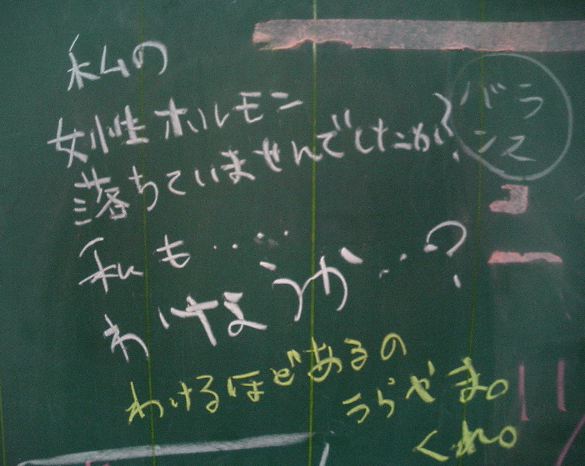 私の
女性ホルモン
落ちていませんでしたか?
バラ
ンス
私も・・・・
わけようか・・・?
わけるほどあるの
うらやま。
くれ。